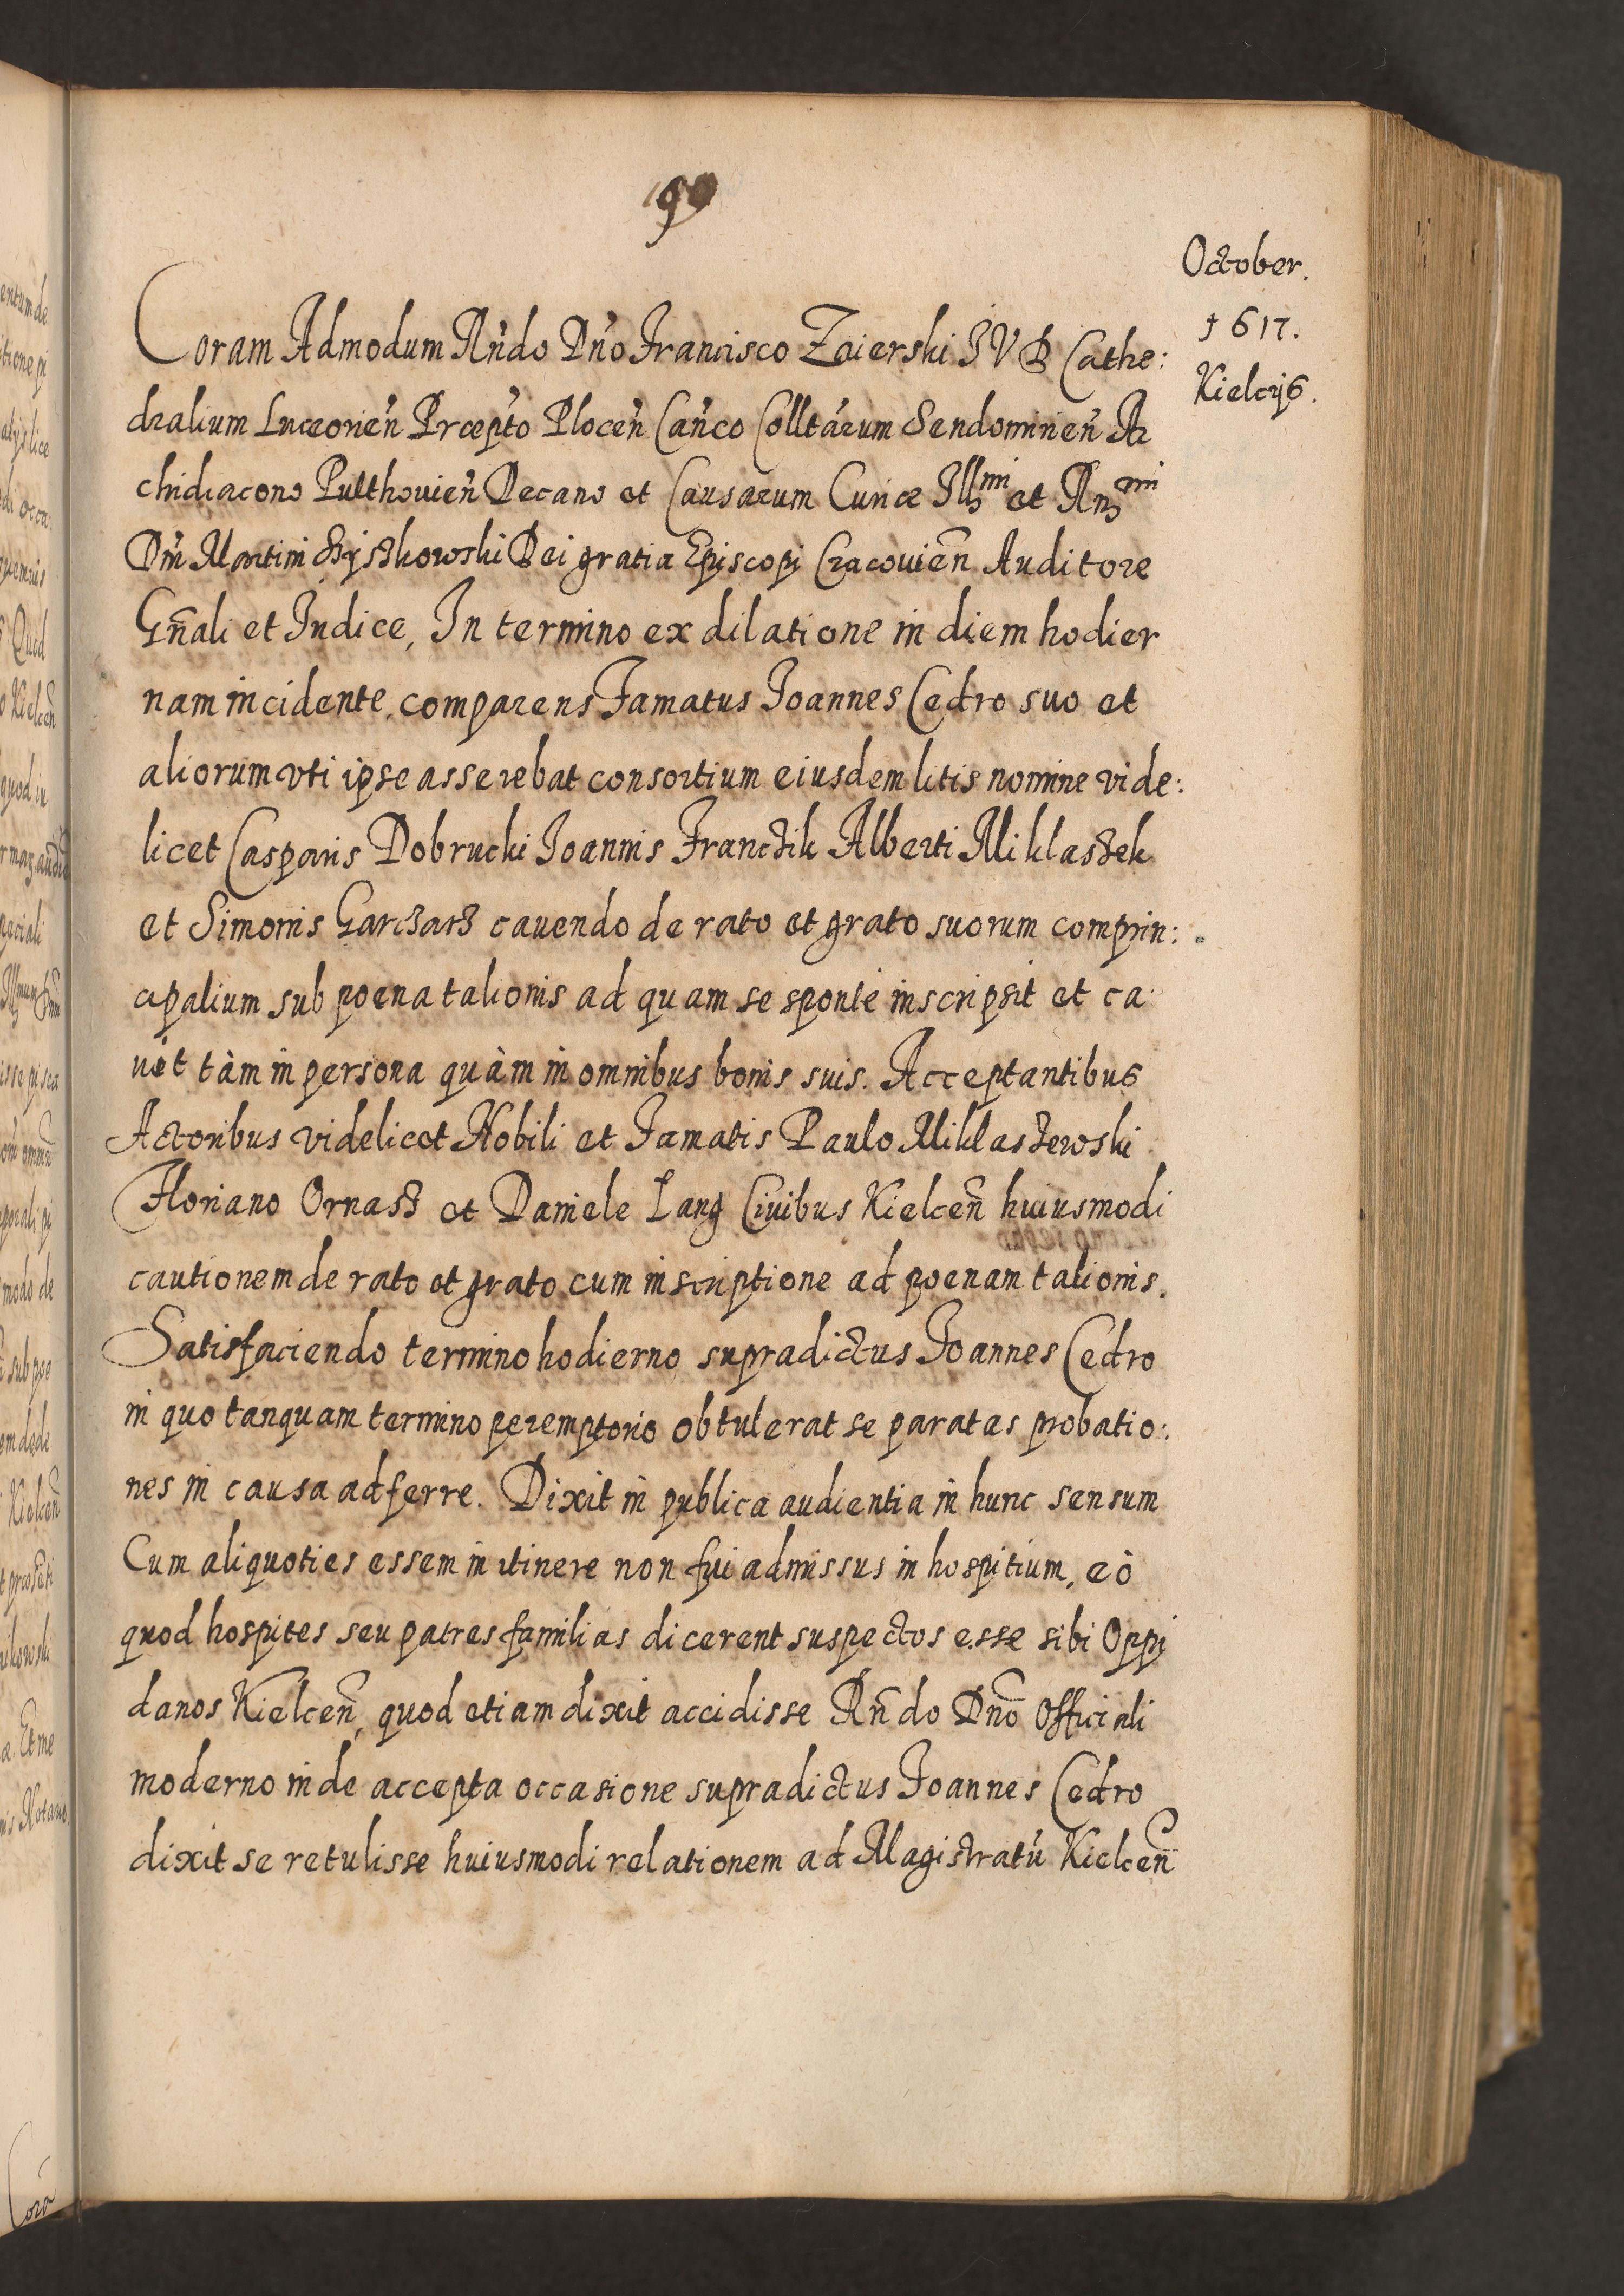 October.
1617.
Kielcijs.
Coram Admodum Rñdo Dño Francisco Zaierski I V D Cathe:
dralium Luceorieñ Prcepto Ploceñ Cañco Colltarum Sendomirieñ Ar
chidiacono Pulthovieñ Decano et Causarum Curiæ Illmi et Rmi
Dñi Martini Szyszkowski Dei gratia Episcopi Cracovieñ Auditore
Gñali et Iudice, In termino ex dilatione in diem hodier
nam incidente, comparens Famatus Joannes Cedro suo et
aliorum vti ipse asserebat consortium eiusdem litis nomine vide:
licet Casparis Dobrucki Joannis Franczik Alberti Miklaszek
et Simonis Garczarz cavendo de rato et grato suorum comprin:
cipalium sub poena talionis ad quam se sponte inscripsit et ca
uèt tàm in persona quàm in omnibus bonis suis. Acceptantibus
Actoribus videlicet Nobili et Famatis Paulo Miklaszewski
Floriano Ornasz et Daniele Lang Civibus Kielceñ huiusmodi
cautionem de rato et grato cum inscriptione ad poenam talionis.
Satisfaciendo termino hodierno supradictus Joannes Cedro
in quo tanquam termino peremptorio obtulerat se paratas probatio:
nes in causa adferre. Dixit in publica audientia in hunc sensum
Cum aliquoties essem in itinere non fui admissus in hospitium, eò
quod hospites seu patres familias dicerent suspectos esse sibi Oppi
danos Kielceñ, quod etiam dixit accidisse Rñdo Dño Officiali
moderno inde accepta occasione supradictus Joannes Cedro
dixit se retulisse huiusmodi relationem ad Magistratũ Kielceñ